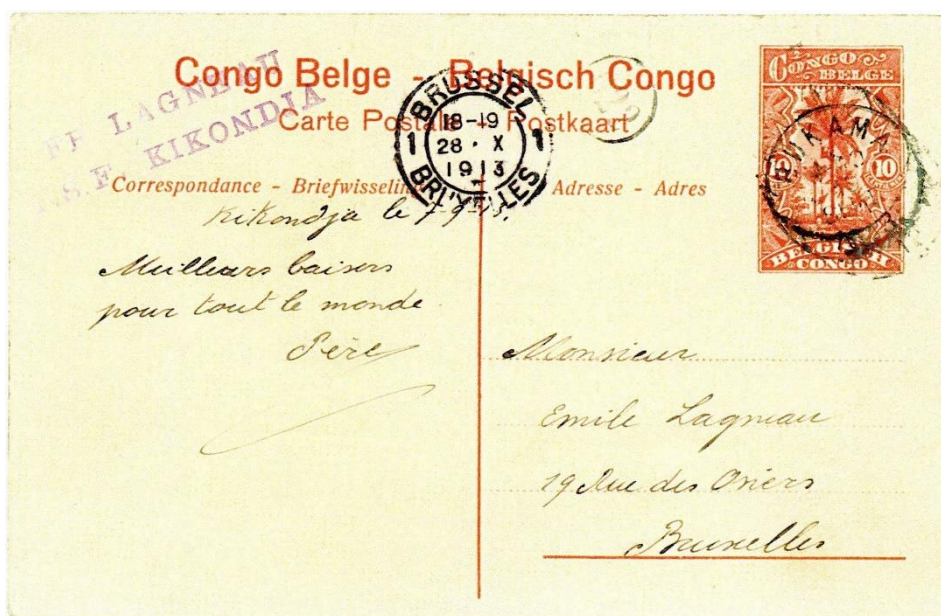 Congo Belge - Belgisch Congo
Carte Postale - Postkaart
LAGNEAU
KIKONDJA
BRUSSEL
18-19
28 · X
1913
BRUXELLES
1 1
CONGO BELGE
10 10
BELGISCH CONGO
BUKAMA
Correspondance - Briefwisseling
Adresse - Adres
Kikondja le 7-9-13.
Meilleurs baisers
pour tout le monde
Père
Monsieur
Emile Lagneau
19 Rue des Osiers
Bruxelles